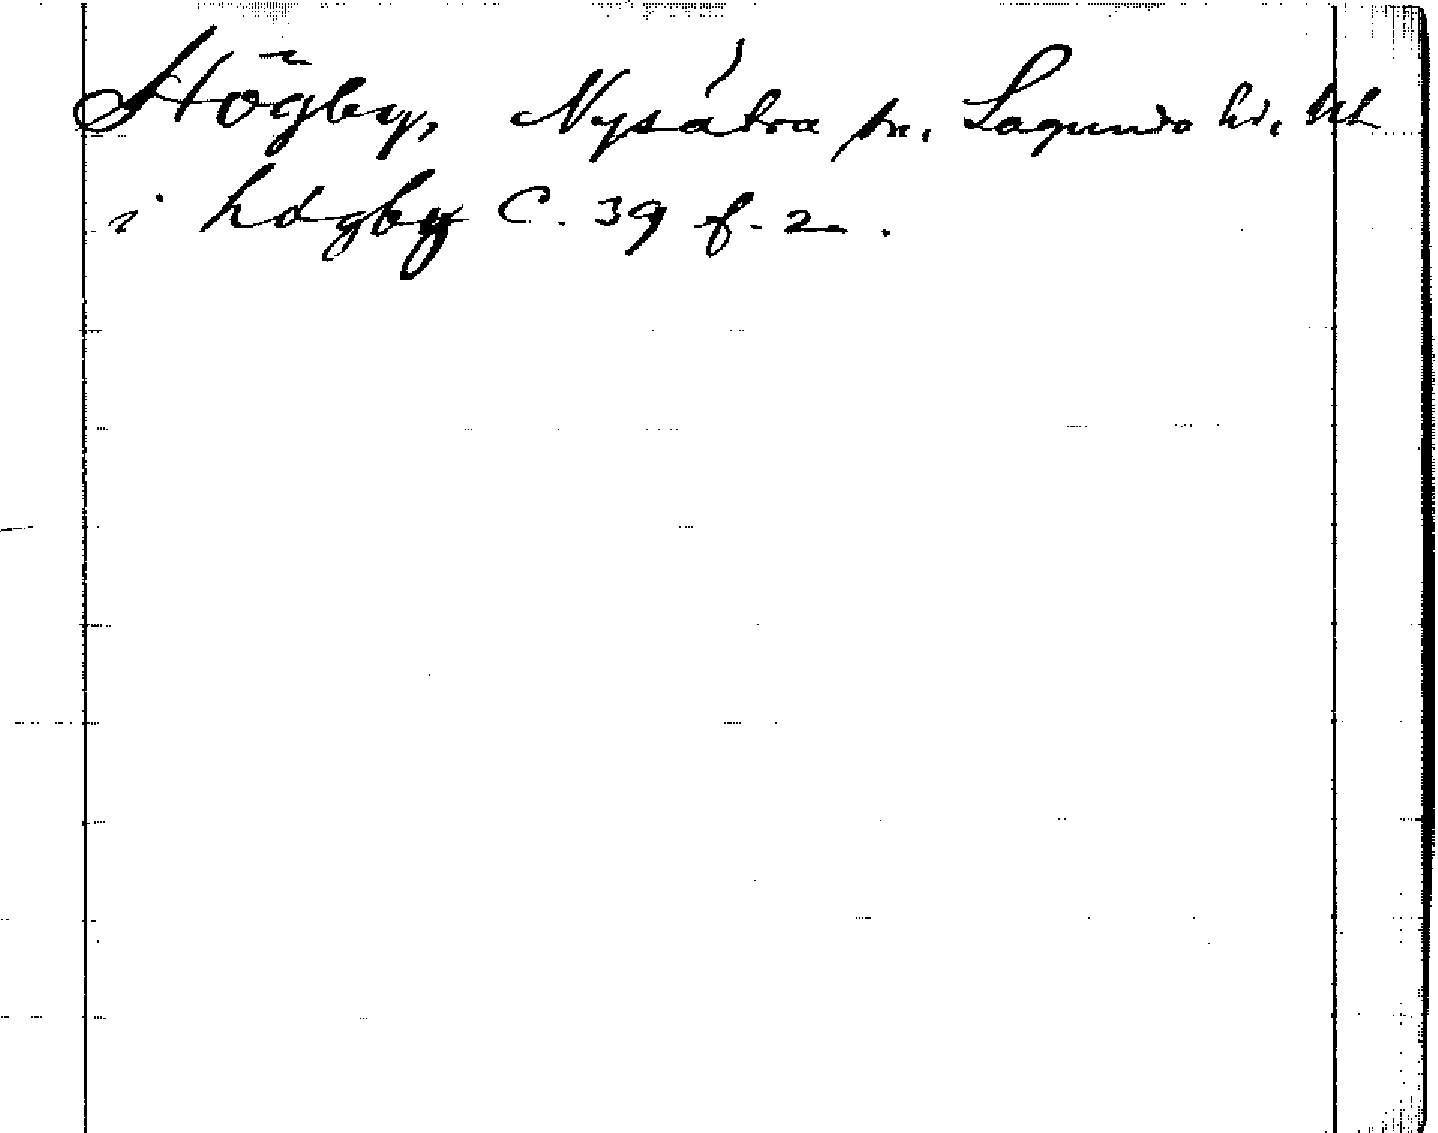 Högby, Nysätra sn. Lagunda hd. Upl
i högby C. 39 f. 2.